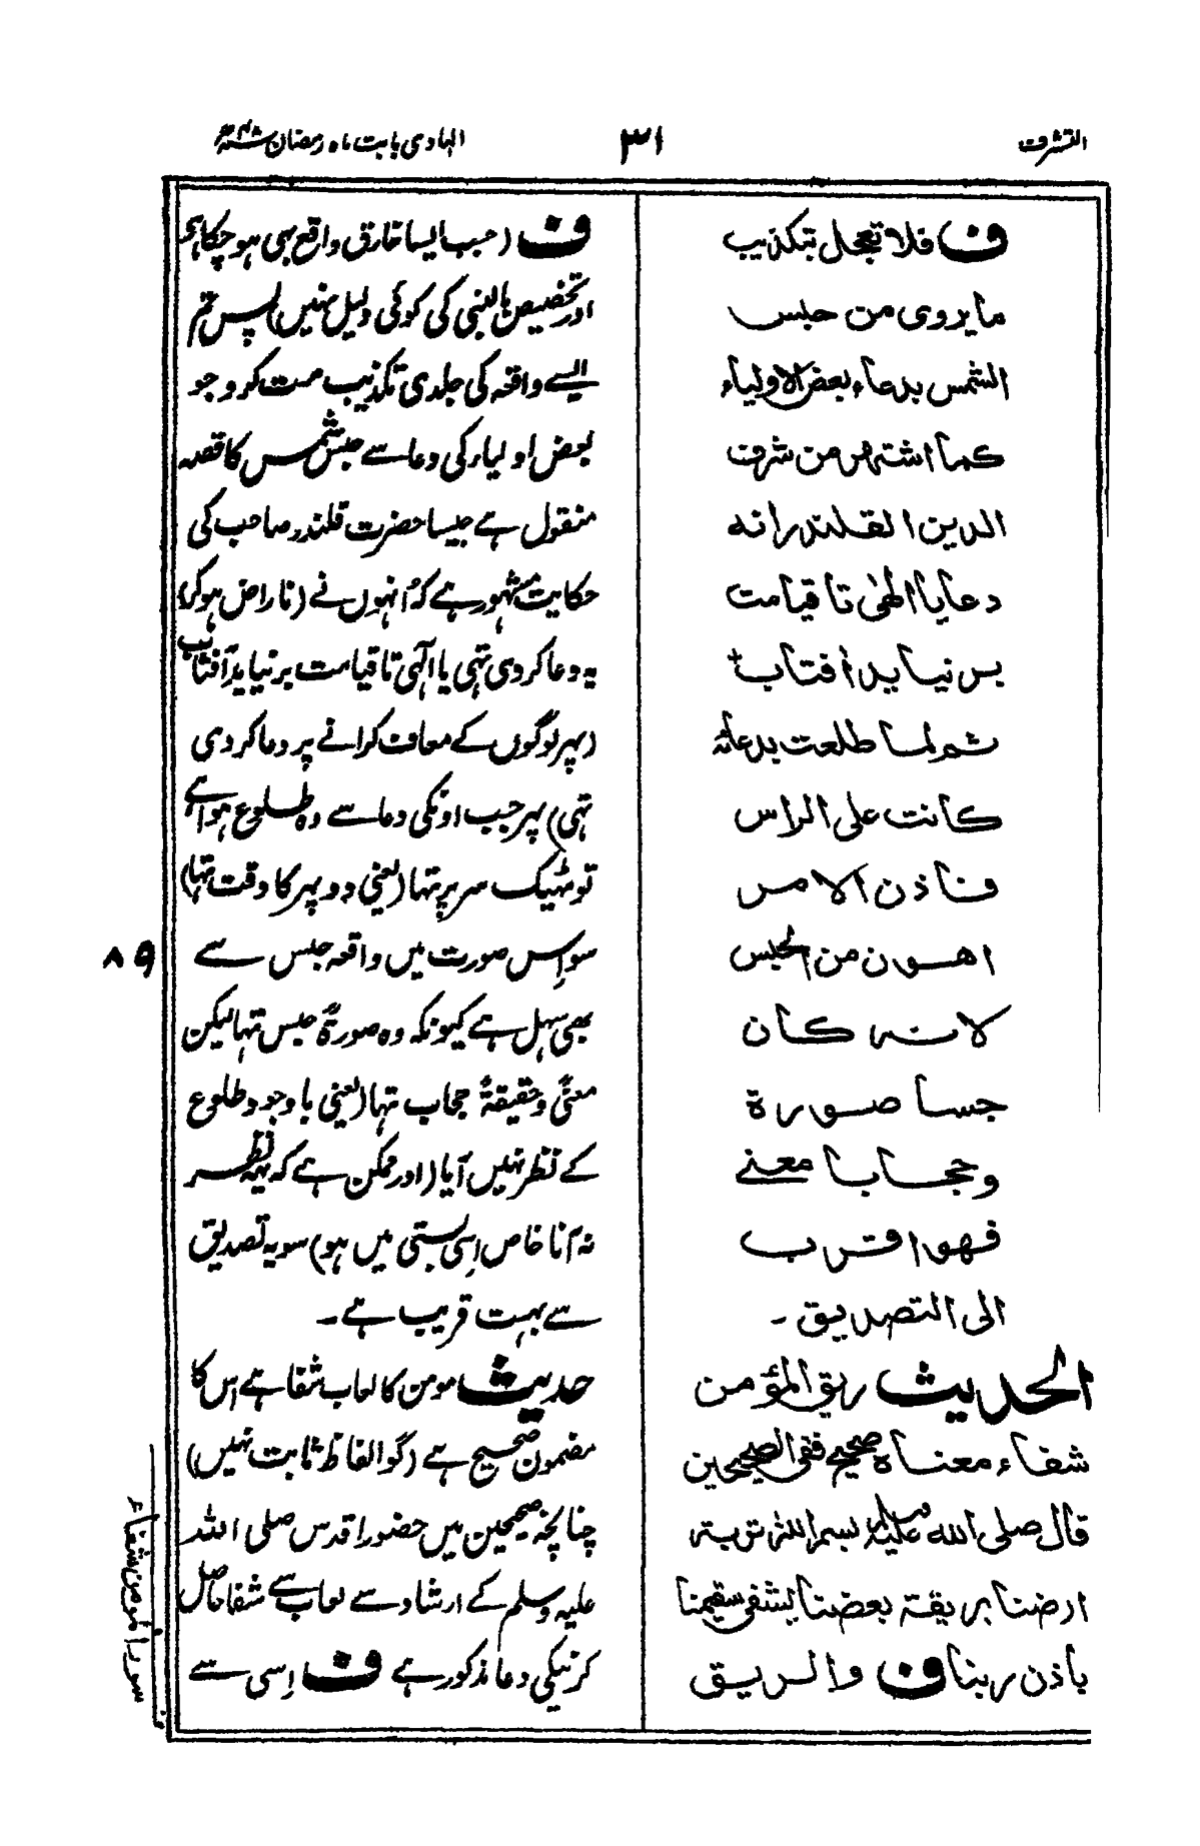 التشرف
۳۱
الہادی بابت ماہ رمضان
ف فلا تعجل بتكذيب
ما يروى من حبس
الشمس بدعاء بعض الاولياء
كما اشتهر من شرف
الدين القلندر انه
دعا يا الهٰى تا قيامت
بر نيايد آفتاب
ثم لما طلعت بدعائه
كانت على الراس
فاذن الامر
اهون من الحبس
لانه كان
حبسا صورة
وحجابا معنے
فهو اقرب
الى التصديق -
الحديث ريق المؤمن
شفاء معناه صحيح ففى الصحيحين
قال صلى الله عليه وسلم بسم الله تربة
ارضنا بريقة بعضنا يشفى سقيمنا
باذن ربنا ف والريق
ف (جب ایسا خارق واقع بہی ہو چکا ہے
اور تخصیص بالنبی کی کوئی دلیل نہیں) پس تم
ایسے واقعہ کی جلدی تکذیب مت کرو جو
بعض اولیاء کی دعا سے حبس شمس کا قصہ
منقول ہے جیسا حضرت قلندر صاحب کی
حکایت مشہور ہے کہ اُنہوں نے (ناراض ہو کر)
یہ دعا کردی تہی یا الٰہی تا قیامت بر نیاید آفتاب
(پہر لوگوں کے معاف کرانے پر دعا کردی
تہی) پہر جب اونکی دعا سے وہ طلوع ہوا ہے
تو ٹھیک سر پر تہا (یعنی دوپہر کا وقت تہا)
سو اِس صورت میں واقعہ حبس سے
بھی سہل ہے کیونکہ وہ صورۃً حبس تہا لیکن
معنیً وحقیقۃً حجاب تہا (یعنی باوجود طلوع
کے نظر نہیں آیا (اور ممکن ہے کہ یہ نظر
نہ آنا خاص اِسی بستی میں ہو) سو یہ تصدیق
سے بہت قریب ہے -
حدیث مومن کا لعاب شفا ہے اس کا
مضمون صحیح ہے (گو الفاظ ثابت نہیں)
چنانچہ صحیحین میں حضور اقدس صلی اللہ
علیہ وسلم کے ارشاد سے لعاب سے شفا حاصل
کرنیکی دعا مذکور ہے ف اِسی سے
۸۹
سور المومن شفاء